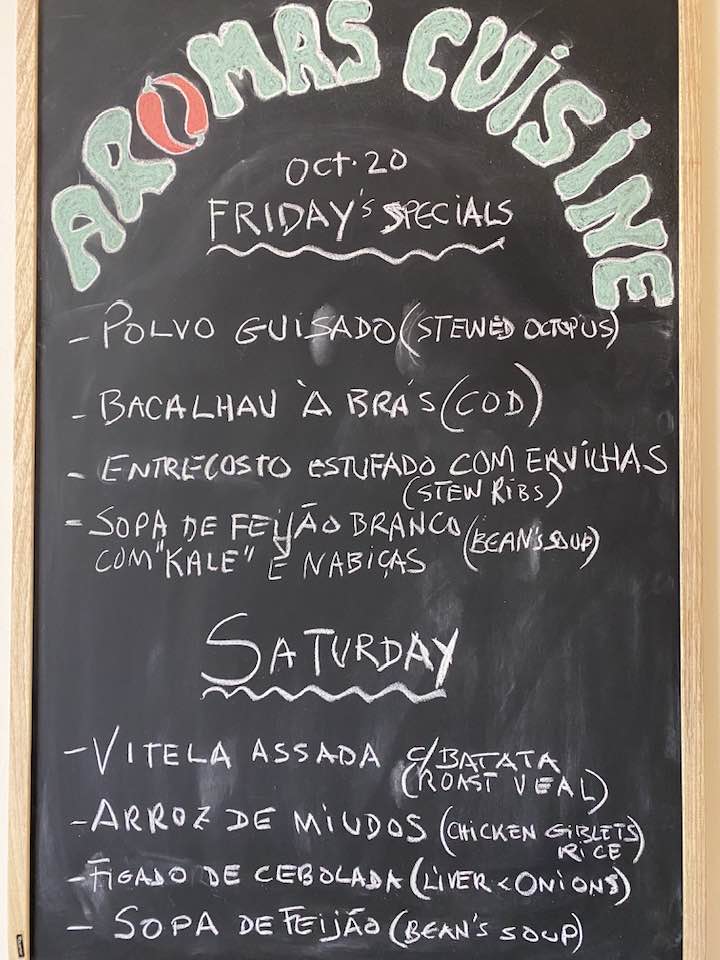 AROMAS CUISINE
OCT. 20
FRIDAY'S SPECIALS
- POLVO GUISADO (STEWED OCTOPUS)
- BACALHAU À BRÁS (COD)
- ENTRECOSTO ESTUFADO COM ERVILHAS
(STEW RIBS)
- SOPA DE FEIJÃO BRANCO (BEAN'S SOUP)
COM "KALE" E NABIÇAS
SATURDAY
- VITELA ASSADA C/BATATA
(ROAST VEAL)
- ARROZ DE MIUDOS (CHICKEN GIBLETS
RICE)
- FIGADO DE CEBOLADA (LIVER < ONIONS)
- SOPA DE FEIJÃO (BEAN'S SOUP)